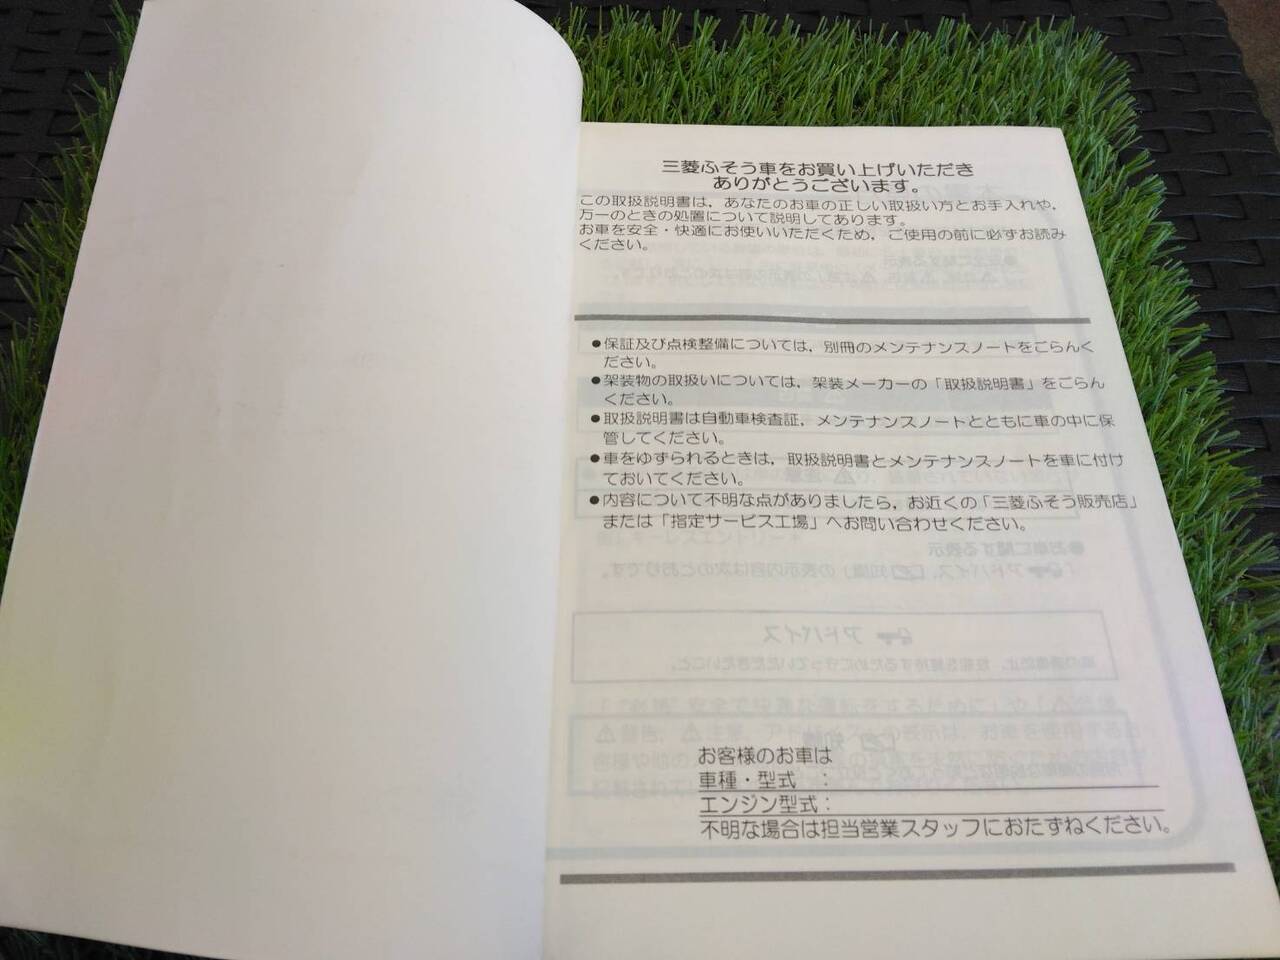 三菱ふそう車をお買い上げいただき
ありがとうございます。
この取扱説明書は，あなたのお車の正しい取扱い方とお手入れや，
万一のときの処置について説明してあります。
お車を安全・快適にお使いいただくため，ご使用の前に必ずお読み
ください。
●保証及び点検整備については，別冊のメンテナンスノートをごらんく
ださい。
●架装物の取扱いについては，架装メーカーの「取扱説明書」をごらん
ください。
●取扱説明書は自動車検査証，メンテナンスノートとともに車の中に保
管してください。
●車をゆずられるときは，取扱説明書とメンテナンスノートを車に付け
ておいてください。
●内容について不明な点がありましたら，お近くの「三菱ふそう販売店」
または「指定サービス工場」へお問い合わせください。
お客様のお車は
車種・型式　：
エンジン型式：
不明な場合は担当営業スタッフにおたずねください。